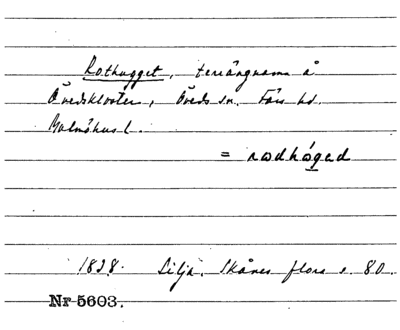 Rothugget, terrängnamn å
Övedskloster, Öveds sn. Färs hd.
Malmöhus l.
= rodhógad
1838. Lilja. Skånes flora s. 80.
Nr 5603.